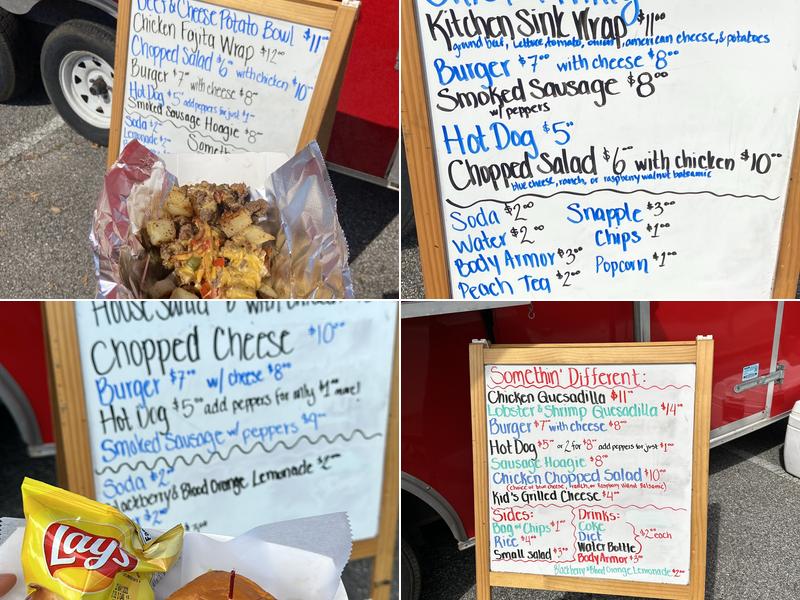 Beef & Cheese Potato Bowl $11⁰⁰
Chicken Fajita Wrap $12⁰⁰
Chopped Salad $6⁰⁰ with chicken $10⁰⁰
Burger $7⁰⁰ with cheese $8⁰⁰
Hot Dog $5⁰⁰ add peppers for just $1⁰⁰
Smoked Sausage Hoagie $8⁰⁰
Soda $2⁰⁰
Lemonade $2⁰⁰
Kitchen Sink Wrap $11⁰⁰
ground beef, lettuce, tomato, onion, american cheese, & potatoes
Burger $7⁰⁰ with cheese $8⁰⁰
Smoked Sausage $8⁰⁰
w/ peppers
Hot Dog $5⁰⁰
Chopped Salad $6⁰⁰ with chicken $10⁰⁰
blue cheese, ranch, or raspberry walnut balsamic
Soda $2⁰⁰
Water $2⁰⁰
Body Armor $3⁰⁰
Peach Tea $2⁰⁰
Snapple $3⁰⁰
Chips $1⁰⁰
Popcorn $1⁰⁰
House Salad 6 with chicken
Chopped Cheese $10⁰⁰
Burger $7⁰⁰ w/ cheese $8⁰⁰
Hot Dog $5⁰⁰ add peppers for only $1⁰⁰ more!
Smoked Sausage w/ peppers $9⁰⁰
Soda $2⁰⁰
Blackberry & Blood Orange Lemonade $2⁰⁰
$2⁰⁰
Lay's
Somethin' Different:
Chicken Quesadilla $11⁰⁰
Lobster & Shrimp Quesadilla $14⁰⁰
Burger $7⁰⁰ with cheese $8⁰⁰
Hot Dog $5⁰⁰ or 2 for $8⁰⁰ add peppers for just $1⁰⁰
Sausage Hoagie $8⁰⁰
Chicken Chopped Salad $10⁰⁰
(choice of blue cheese, ranch, or Raspberry Walnut Balsamic)
Kid's Grilled Cheese $4⁰⁰
Sides:
Bag of Chips $1⁰⁰
Rice $4⁰⁰
Small salad $3⁰⁰
Drinks:
Coke
Diet
Water Bottle
$2⁰⁰ each
Body Armor $3⁰⁰
Blackberry & Blood Orange Lemonade $2⁰⁰